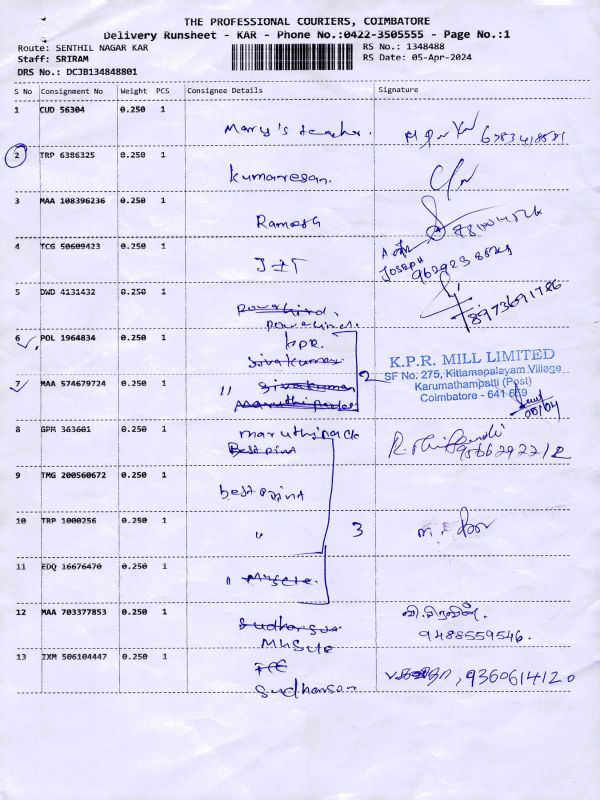 THE PROFESSIONAL COURIERS, COIMBATORE
Delivery Runsheet - KAR - Phone No.:0422-3505555 - Page No.:1
Route: SENTHIL NAGAR KAR RS No.: 1348488
Staff: SRIRAM RS Date: 05-Apr-2024
DRS No.: DCJB134848801
S No Consignment No Weight PCS Consignee Details Signature
1 CUD 56304 0.250 1
Mary's teacher.
2 TRP 6386325 0.250 1
Kumaresan.
3 MAA 108396236 0.250 1
Ramesh
4 TCG 50609423 0.250 1
JIT
JOSEPH
5 DWD 4131432 0.250 1
8973691786
6 POL 1964834 0.250 1
kpr.
Sivakumar
K.P.R. MILL LIMITED
SF No. 275, Kittamapalayam Village
Karumathampatti (Post)
Coimbatore - 641 659
7 MAA 574679724 0.250 1
" Sivakumar
2
8 GPM 363601 0.250 1
maruthi pack
Best print
9 TMG 200560672 0.250 1
best print
10 TRP 1000256 0.250 1
" 3
11 EDQ 16676470 0.250 1
12 MAA 703377853 0.250 1
9488559546.
13 IXM 506104447 0.250 1
9360614120
Sudharsan